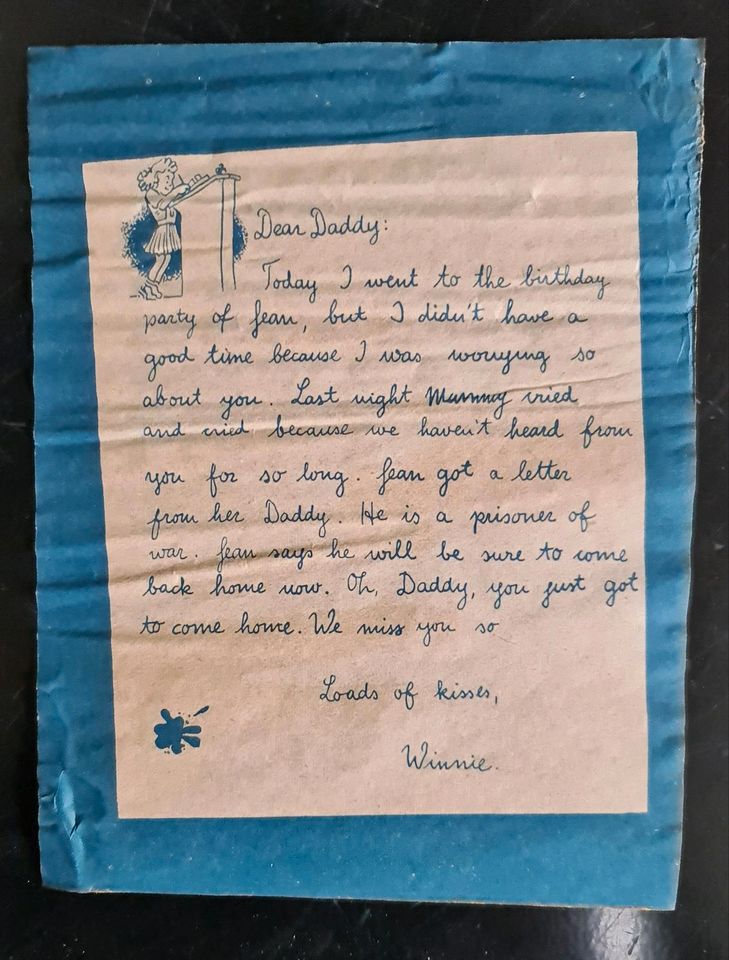 Dear Daddy:
Today I went to the birthday
party of Jean, but I didn't have a
good time because I was worrying so
about you. Last night Mummy cried
and cried because we haven't heard from
you for so long. Jean got a letter
from her Daddy. He is a prisoner of
war. Jean says he will be sure to come
back home now. Oh, Daddy, you just got
to come home. We miss you so
Loads of kisses,
Winnie.